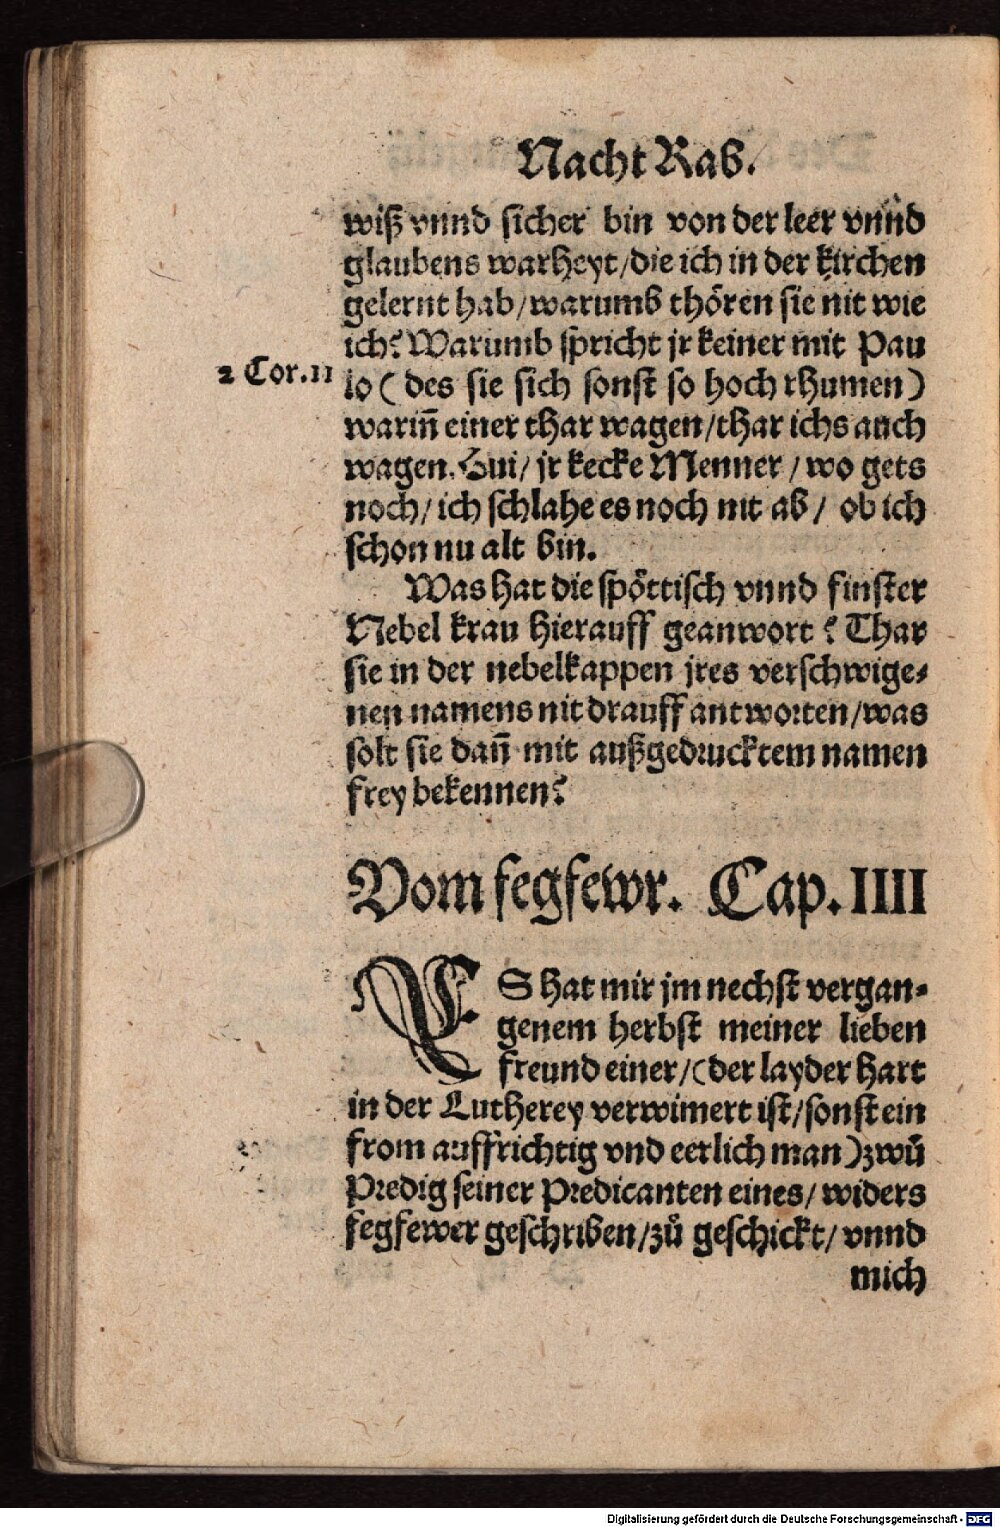 Nacht Rab.
wiß vnnd sicher bin von der leer vnnd
glaubens warheyt/die ich in der kirchen
gelernt hab/warumb thören sie nit wie
ich? Warumb spricht jr keiner mit Pau
2 Cor. 11
lo ( des sie sich sonst so hoch rhumen )
wariñ einer thar wagen/thar ichs auch
wagen. Hui/ jr kecke Menner / wo gets
noch/ ich schlahe es noch nit ab/ ob ich
schon nu alt bin.
Was hat die spöttisch vnnd finster
Nebel krau hierauff geanwort ? Thar
sie in der nebelkappen jres verschwige⸗
nen namens nit drauff antworten/was
solt sie dañ mit außgedrucktem namen
frey bekennen?
Vom fegfewr. Cap. IIII
ES hat mir jm nechst vergan⸗
genem herbst meiner lieben
freund einer/(der layder hart
in der Lutherey verwimert ist/sonst ein
from auffrichtig vnd eerlich man)zwů
Predig seiner Predicanten eines/ widers
fegfewer geschriben/zů geschickt/ vnnd
mich
Digitalisierung gefördert durch die Deutsche Forschungsgemeinschaft - DFG